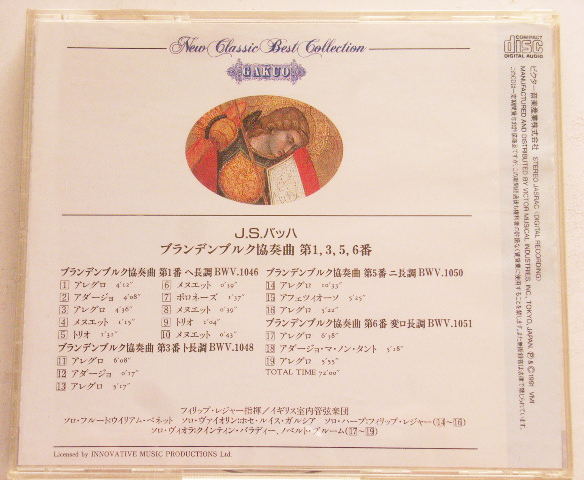 New Classic Best Collection
GAKUO
COMPACT
disc
DIGITAL AUDIO
J.S.バッハ
ブランデンブルク協奏曲 第1,3,5,6番
ブランデンブルク協奏曲 第1番 ヘ長調 BWV.1046
1 アレグロ 4'12"
2 アダージョ 4'08"
3 アレグロ 4'36"
4 メヌエット 1'15"
5 トリオ 1'31"
6 メヌエット 0'39"
7 ポロネーズ 1'37"
8 メヌエット 0'39"
9 トリオ 1'04"
10 メヌエット 0'43"
ブランデンブルク協奏曲 第3番 ト長調 BWV.1048
11 アレグロ 6'08"
12 アダージョ 0'17"
13 アレグロ 5'17"
ブランデンブルク協奏曲 第5番 ニ長調 BWV.1050
14 アレグロ 10'33"
15 アフェツィオーソ 5'25"
16 アレグロ 5'22"
ブランデンブルク協奏曲 第6番 変ロ長調 BWV.1051
17 アレグロ 6'38"
18 アダージョ・マ・ノン・タント 5'18"
19 アレグロ 5'55"
TOTAL TIME 72'00"
フィリップ・レジャー指揮/イギリス室内管弦楽団
ソロ・フルート:ウイリアム・ベネット ソロ・ヴァイオリン:ホセ・ルイス・ガルシア ソロ・ハープ:フィリップ・レジャー(14〜16)
ソロ・ヴィオラ:クインティン・バラディー、ノベルト・ブルーム(17〜19)
Licensed by INNOVATIVE MUSIC PRODUCTIONS Ltd.
ビクター音楽産業株式会社 STEREO JASRAC (DIGITAL RECORDING)
MANUFACTURED AND DISTRIBUTED BY VICTOR MUSICAL INDUSTRIES, INC., TOKYO, JAPAN. ℗&©1991 VMI